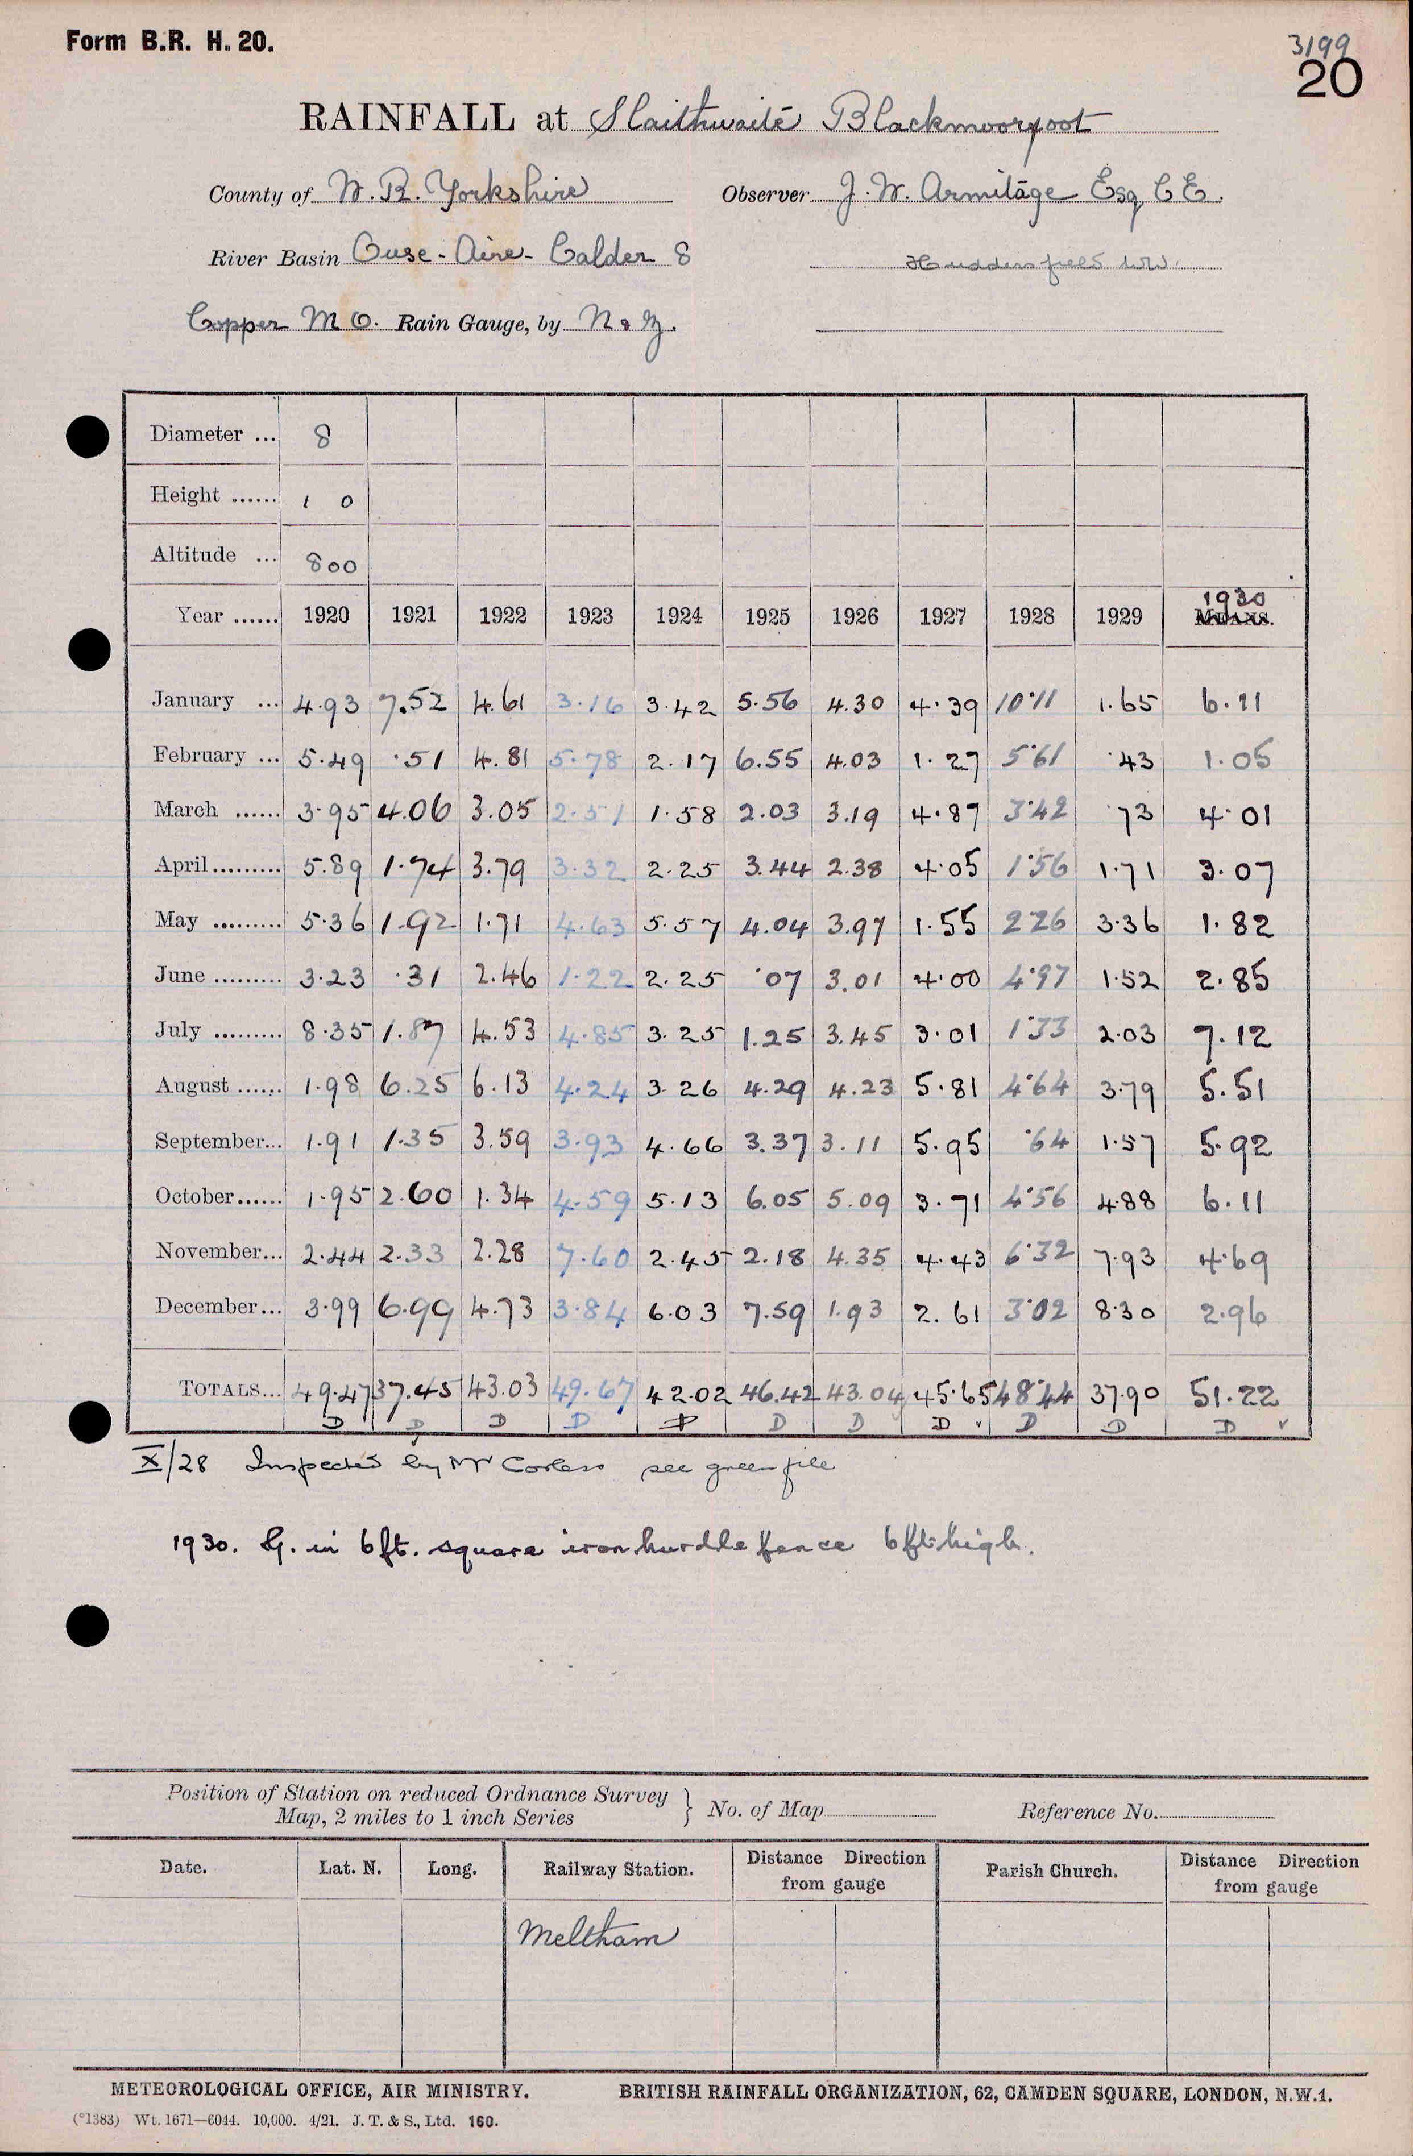 Form B.R. H. 20.
3199
20
RAINFALL at Slaithwaite Blackmoorfoot
County of W. R. Yorkshire Observer J. W. Armitage Esq C E.
River Basin Ouse - Aire - Calder 8 Huddersfield W.W.
Copper M O. Rain Gauge, by N & Z.
Diameter ... 8
Height ...... 1 0
Altitude ... 800
Year ...... 1920 1921 1922 1923 1924 1925 1926 1927 1928 1929 1930 MEANS.
January ... 4.93 7.52 4.61 3.16 3.42 5.56 4.30 4.39 10.11 1.65 6.11
February ... 5.49 .51 4.81 5.78 2.17 6.55 4.03 1.27 5.61 .43 1.05
March ...... 3.95 4.06 3.05 2.51 1.58 2.03 3.19 4.87 3.42 .73 4.01
April ......... 5.89 1.74 3.79 3.32 2.25 3.44 2.38 4.05 1.56 1.71 3.07
May ......... 5.36 1.92 1.71 4.63 5.57 4.04 3.97 1.55 2 26 3.36 1.82
June ......... 3.23 .31 2.46 1.22 2.25 .07 3.01 4.00 4.97 1.52 2.85
July ......... 8.35 1.87 4.53 4.85 3.25 1.25 3.45 3.01 1.33 2.03 7.12
August ...... 1.98 6.25 6.13 4.24 3.26 4.29 4.23 5.81 4.64 3.79 5.51
September... 1.91 1.35 3.59 3.93 4.66 3.37 3.11 5.95 .64 1.57 5.92
October...... 1.95 2.60 1.34 4.59 5.13 6.05 5.09 3.71 4.56 4.88 6.11
November... 2.44 2.33 2.28 7.60 2.45 2.18 4.35 4.43 6.32 7.93 4.69
December... 3.99 6.99 4.73 3.84 6.03 7.59 1.93 2.61 3.02 8.30 2.96
TOTALS... 49.47 37.45 43.03 49.67 42.02 46.42 43.04 45.65 48.44 37.90 51.22
D D D D D D D D ✓ D D D ✓
X/28 Inspected by Mr Corless see green file
1930. G. in 6 ft. square iron hurdle fence 6 ft. high.
Position of Station on reduced Ordnance Survey
Map, 2 miles to 1 inch Series } No. of Map Reference No.
Date. Lat. N. Long. Railway Station. Distance Direction from gauge Parish Church. Distance Direction from gauge
Meltham
METEOROLOGICAL OFFICE, AIR MINISTRY. BRITISH RAINFALL ORGANIZATION, 62, CAMDEN SQUARE, LONDON, N.W.1.
(°1383) Wt. 1671—6044. 10,000. 4/21. J. T. & S., Ltd. 160.